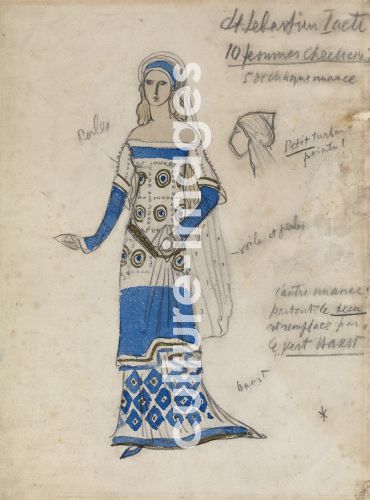 St Sebastien I acte
10 femmes chretiens
5 de chaque nuance
Perles
Petit turban
pointu!
voile et perles
l'autre nuance:
partout le bleu
est remplacé par
le vert
culture-images